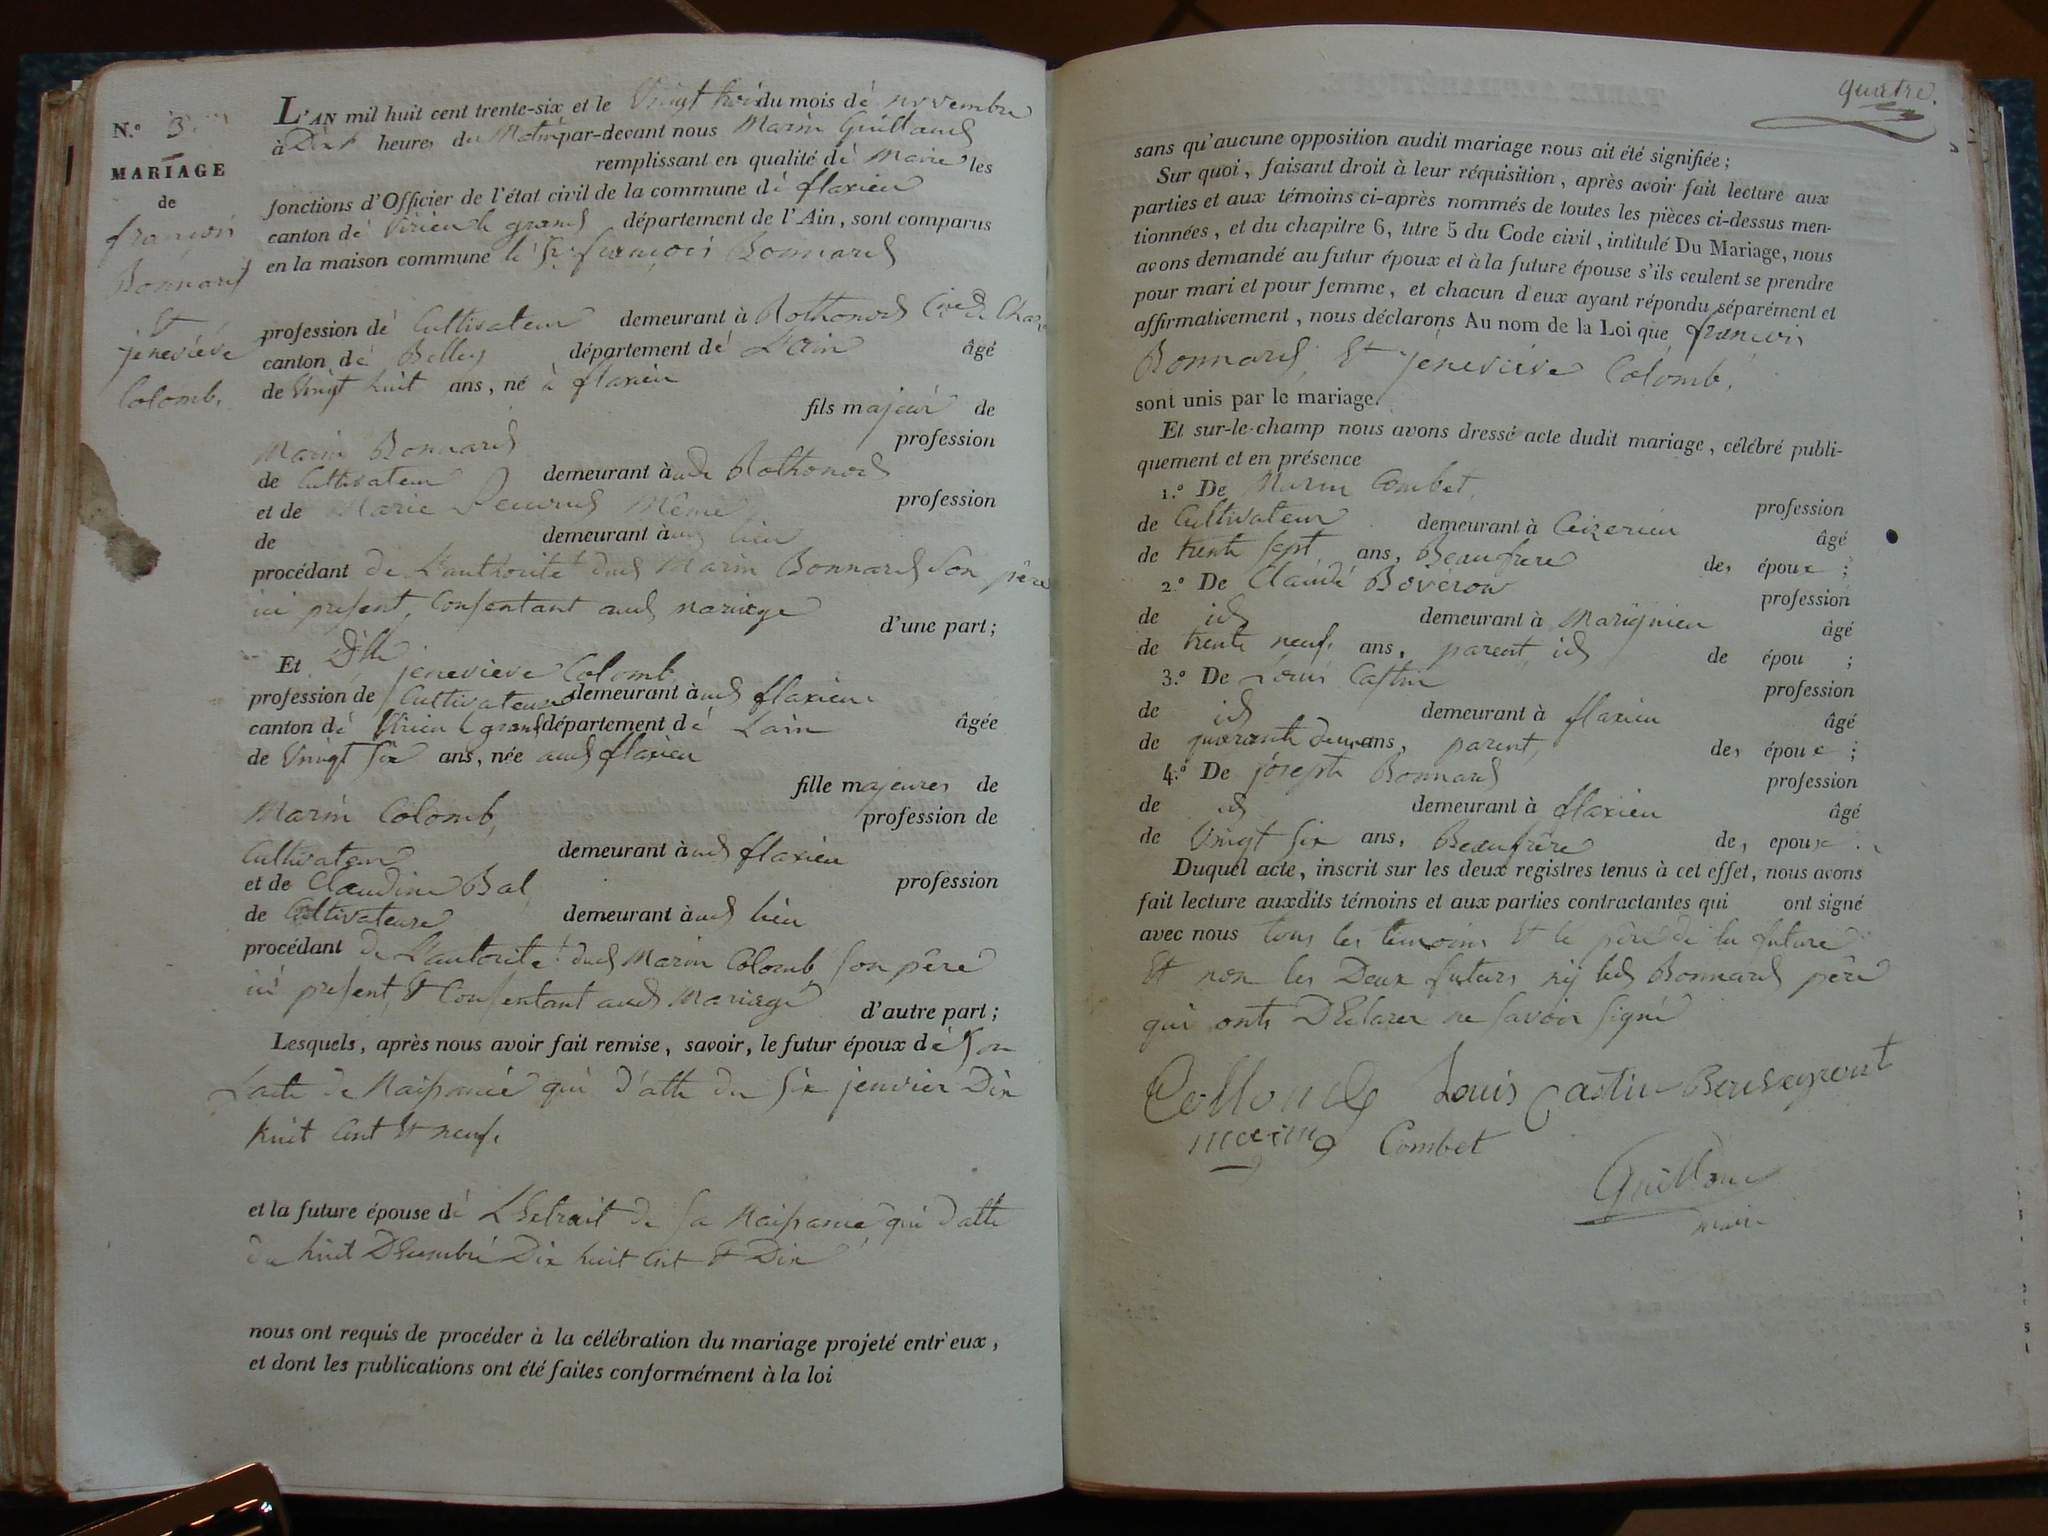 N.º 3
MARIAGE
de
françois
Bonnard
Et
jeneviéve
Colomb.
L'AN mil huit cent trente-six et le Vingt trois du mois de novembre
à Dix heures du Matin par-devant nous Marin Guilland
remplissant en qualité de Maire les
fonctions d'Officier de l'état civil de la commune de flaxieu
canton de Virieu le grand département de l'Ain, sont comparus
en la maison commune le Sr. françois Bonnard
profession de Cultivateur demeurant à Rothonod
canton de Belley département de L'ain âgé
de Vingt huit ans, né à flaxieu
fils majeur de
Marin Bonnard profession
de Cultivateur demeurant à Rothonod
et de Marie Même profession
de demeurant à lieu
procédant de L'authorité dud Marin Bonnard Son père
ici present, Consentant aud mariage
d'une part;
Et Dlle jenevieve Colomb
profession de Cultivateuse demeurant à aud flaxieu
canton de Virieu l grand département de Lain âgée
de Vingt Six ans, née aud flaxieu
fille majeures de
Marin Colomb, profession de
Cultivateur demeurant à aud flaxieu
et de Claudine Bal, profession
de Cultivateure demeurant à aud lieu
procédant de L'autorité dud Marin Colomb Son père
ici present, Et Consentant aud Mariage
d'autre part;
Lesquels, après nous avoir fait remise, savoir, le futur époux de Son
L'acte de Naissance qui d'atte du Six jenvier Dix
huit Cent Et neuf.
et la future épouse de L'Extrait de Sa Naissance qui datte
du huit Décembre Dix huit Cent Et Dix
nous ont requis de procéder à la célébration du mariage projeté entr'eux,
et dont les publications ont été faites conformément à la loi
quatre.
sans qu'aucune opposition audit mariage nous ait été signifiée;
Sur quoi, faisant droit à leur réquisition, après avoir fait lecture aux
parties et aux témoins ci-après nommés de toutes les pièces ci-dessus men-
tionnées, et du chapitre 6, titre 5 du Code civil, intitulé Du Mariage, nous
avons demandé au futur époux et à la future épouse s'ils veulent se prendre
pour mari et pour femme, et chacun d'eux ayant répondu séparément et
affirmativement, nous déclarons Au nom de la Loi que françois
Bonnard, Et jéneviéve Colomb,
sont unis par le mariage.
Et sur-le-champ nous avons dressé acte dudit mariage, célébré publi-
quement et en présence
1.º De Marin Combet, profession
de Cultivateur demeurant à Ceizerieu âgé
de trente Sept ans, Beaufrere des époux;
2.º De Claude profession
de id demeurant à Marignieu âgé
de trente neuf ans, parent, id de épou ;
3.º De Louis Castin profession
de id demeurant à flaxieu âgé
de quarante deux ans, parent, des époux;
4.º De joseph Bonnard profession
de id demeurant à flaxieu âgé
de Vingt Six ans, Beaufrère des epoux.
Duquel acte, inscrit sur les deux registres tenus à cet effet, nous avons
fait lecture auxdits témoins et aux parties contractantes qui ont signé
avec nous tous les temoins Et le père de la future
Et non les Deux futurs nÿ led Bonnard père
qui onts DEclarer ne Savoir Signé
Louis Castin
Combet
Guilland
maire